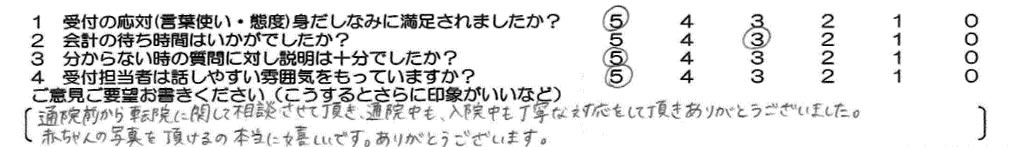 1 受付の応対(言葉使い・態度)身だしなみに満足されましたか? 5 4 3 2 1 0
2 会計の待ち時間はいかがでしたか? 5 4 3 2 1 0
3 分からない時の質問に対し説明は十分でしたか? 5 4 3 2 1 0
4 受付担当者は話しやすい雰囲気をもっていますか? 5 4 3 2 1 0
ご意見ご要望お書きください(こうするとさらに印象がいいなど)
通院前から転院に関して相談させて頂き、通院中も、入院中も丁寧な対応をして頂きありがとうございました。
赤ちゃんの写真を頂けるの本当に嬉しいです。ありがとうございます。